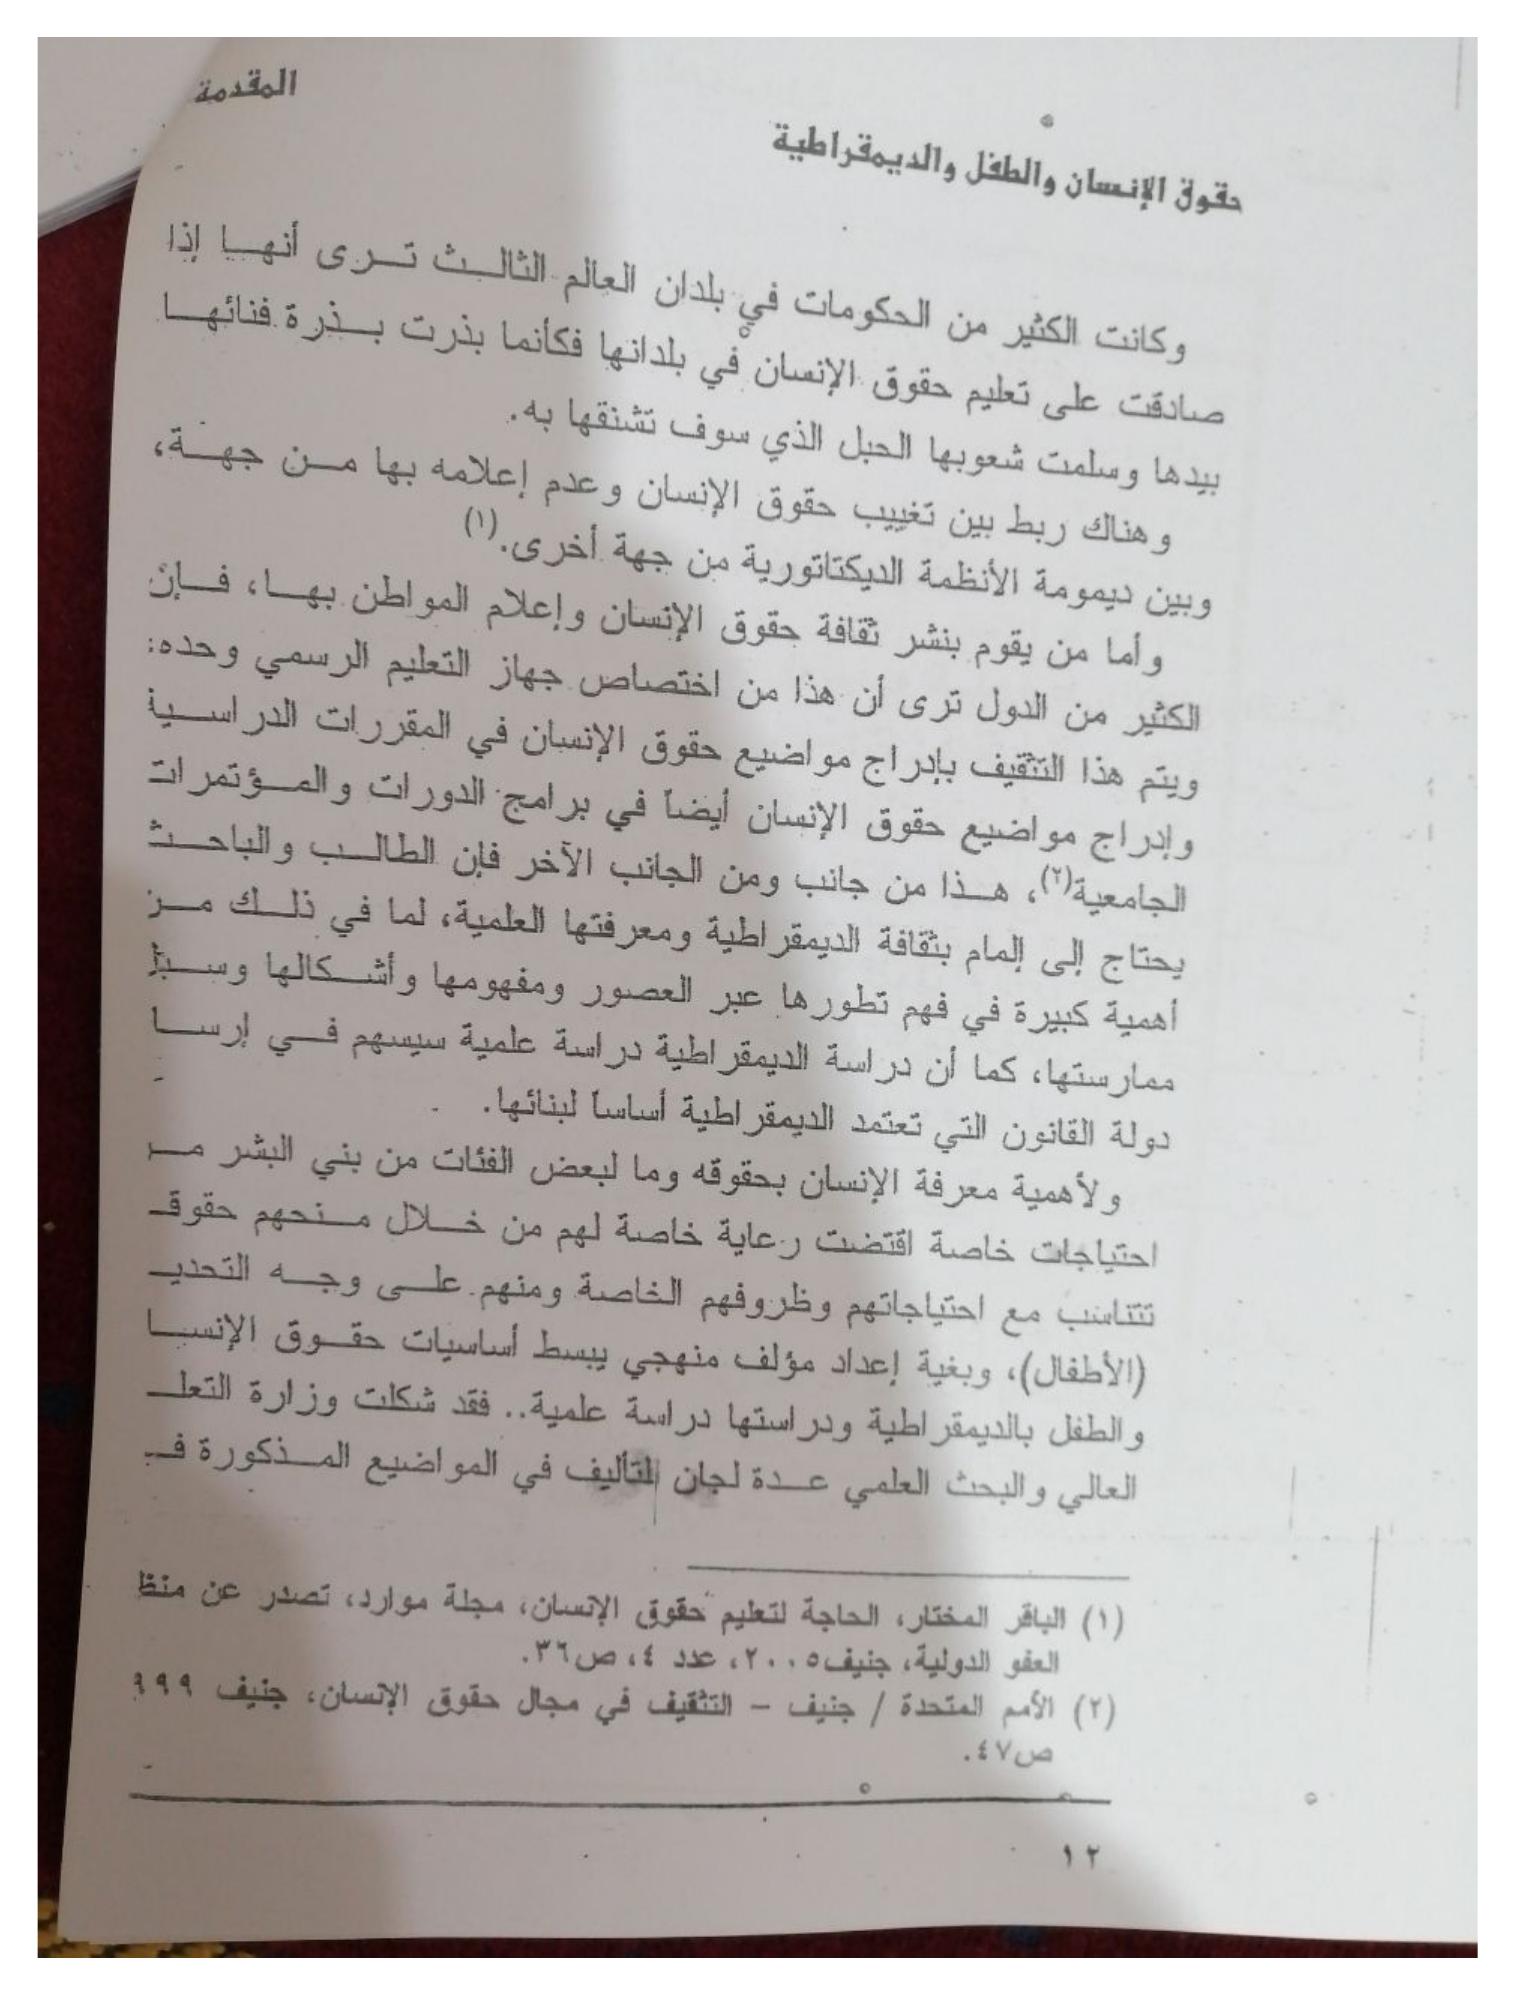 المقدمة
حقوق الإنسان والطفل والديمقراطية
وكانت الكثير من الحكومات في بلدان العالم الثالث ترى أنها إذا
صادقت على تعليم حقوق الإنسان في بلدانها فكأنما بذرت بذرة فنائها
بيدها وسلمت شعوبها الحبل الذي سوف تشنقها به.
وهناك ربط بين تغييب حقوق الإنسان وعدم إعلامه بها من جهة،
وبين ديمومة الأنظمة الديكتاتورية من جهة أخرى.(١)
وأما من يقوم بنشر ثقافة حقوق الإنسان وإعلام المواطن بها، فإن
الكثير من الدول ترى أن هذا من اختصاص جهاز التعليم الرسمي وحده:
ويتم هذا التثقيف بإدراج مواضيع حقوق الإنسان في المقررات الدراسية
وإدراج مواضيع حقوق الإنسان أيضاً في برامج الدورات والمؤتمرات
الجامعية(٢)، هذا من جانب ومن الجانب الآخر فإن الطالب والباحث
يحتاج إلى إلمام بثقافة الديمقراطية ومعرفتها العلمية، لما في ذلك مـن
أهمية كبيرة في فهم تطورها عبر العصور ومفهومها وأشكالها
ممارستها، كما أن دراسة الديمقراطية دراسة علمية سيسهم في إرسا
دولة القانون التي تعتمد الديمقراطية أساساً لبنائها.
ولأهمية معرفة الإنسان بحقوقه وما لبعض الفئات من بني البشر
احتياجات خاصة اقتضت رعاية خاصة لهم من خلال منحهم حقوقـ
تتناسب مع احتياجاتهم وظروفهم الخاصة ومنهم على وجه التحديـ
(الأطفال)، وبغية إعداد مؤلف منهجي يبسط أساسيات حقوق الإنسا
والطفل بالديمقراطية ودراستها دراسة علمية.. فقد شكلت وزارة التعلـ
العالي والبحث العلمي عدة لجان لتأليف في المواضيع المذكورة فـ
(١) الباقر المختار، الحاجة لتعليم حقوق الإنسان، مجلة موارد، تصدر عن منظ
العفو الدولية، جنيف٢٠٠٥، عدد ٤، ص٣٦.
(٢) الأمم المتحدة / جنيف – التثقيف في مجال حقوق الإنسان، جنيف ٩٩٩
ص٤٧.
١٢